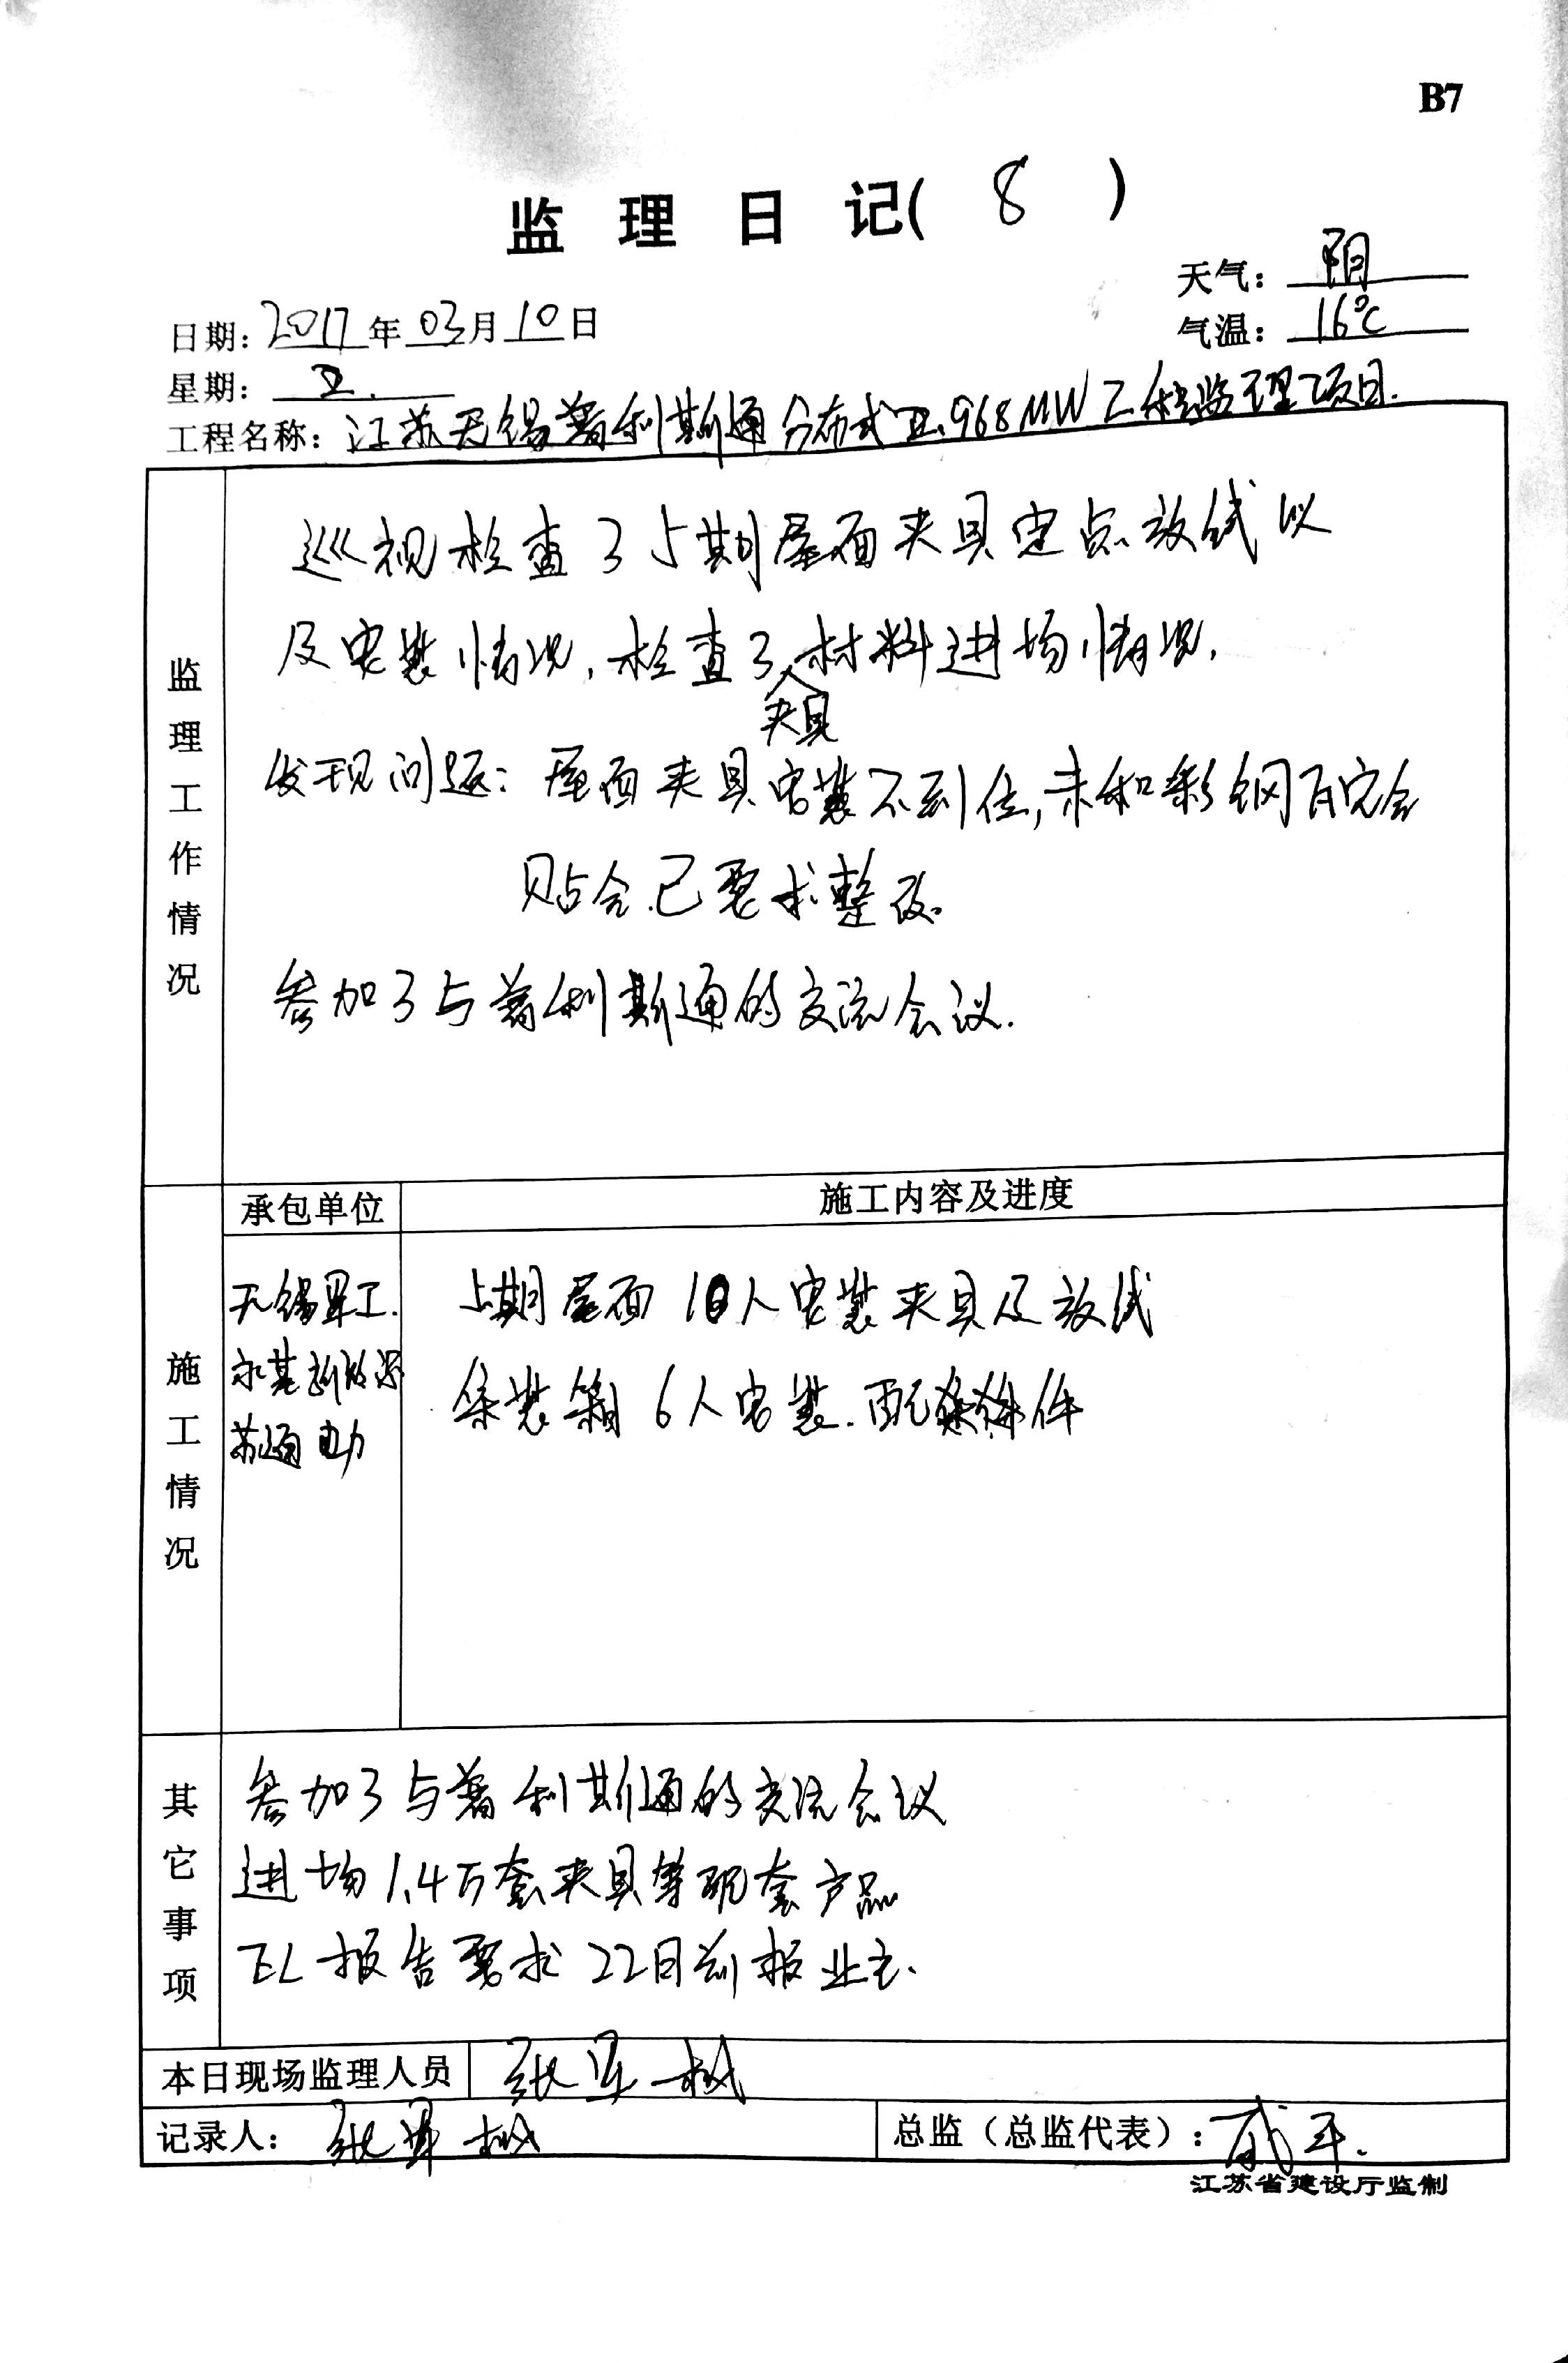 B7
监理日记( 8 )
天气: 阴
日期: 2017年03月10日
气温: 16℃
星期: 五.
工程名称: 江苏无锡普利斯通分布式五.968MW工程监理项目.
监理工作情况
巡视检查了5期屋面夹具定点放线以
及安装情况,检查了夹具材料进场情况,
发现问题: 屋面夹具安装不到位,未和彩钢瓦完全
贴合.已要求整改.
参加了与普利斯通的交流会议.
承包单位
施工内容及进度
施工情况
无锡军工.
永基新能源
苏通电力
5期屋面10人安装夹具及放线
集装箱6人安装.配件
其它事项
参加了与普利斯通的交流会议
进场1.4万套夹具等配套产品
EL报告要求22日前报业主.
本日现场监理人员 张军
记录人: 张军
总监(总监代表): 平.
江苏省建设厅监制